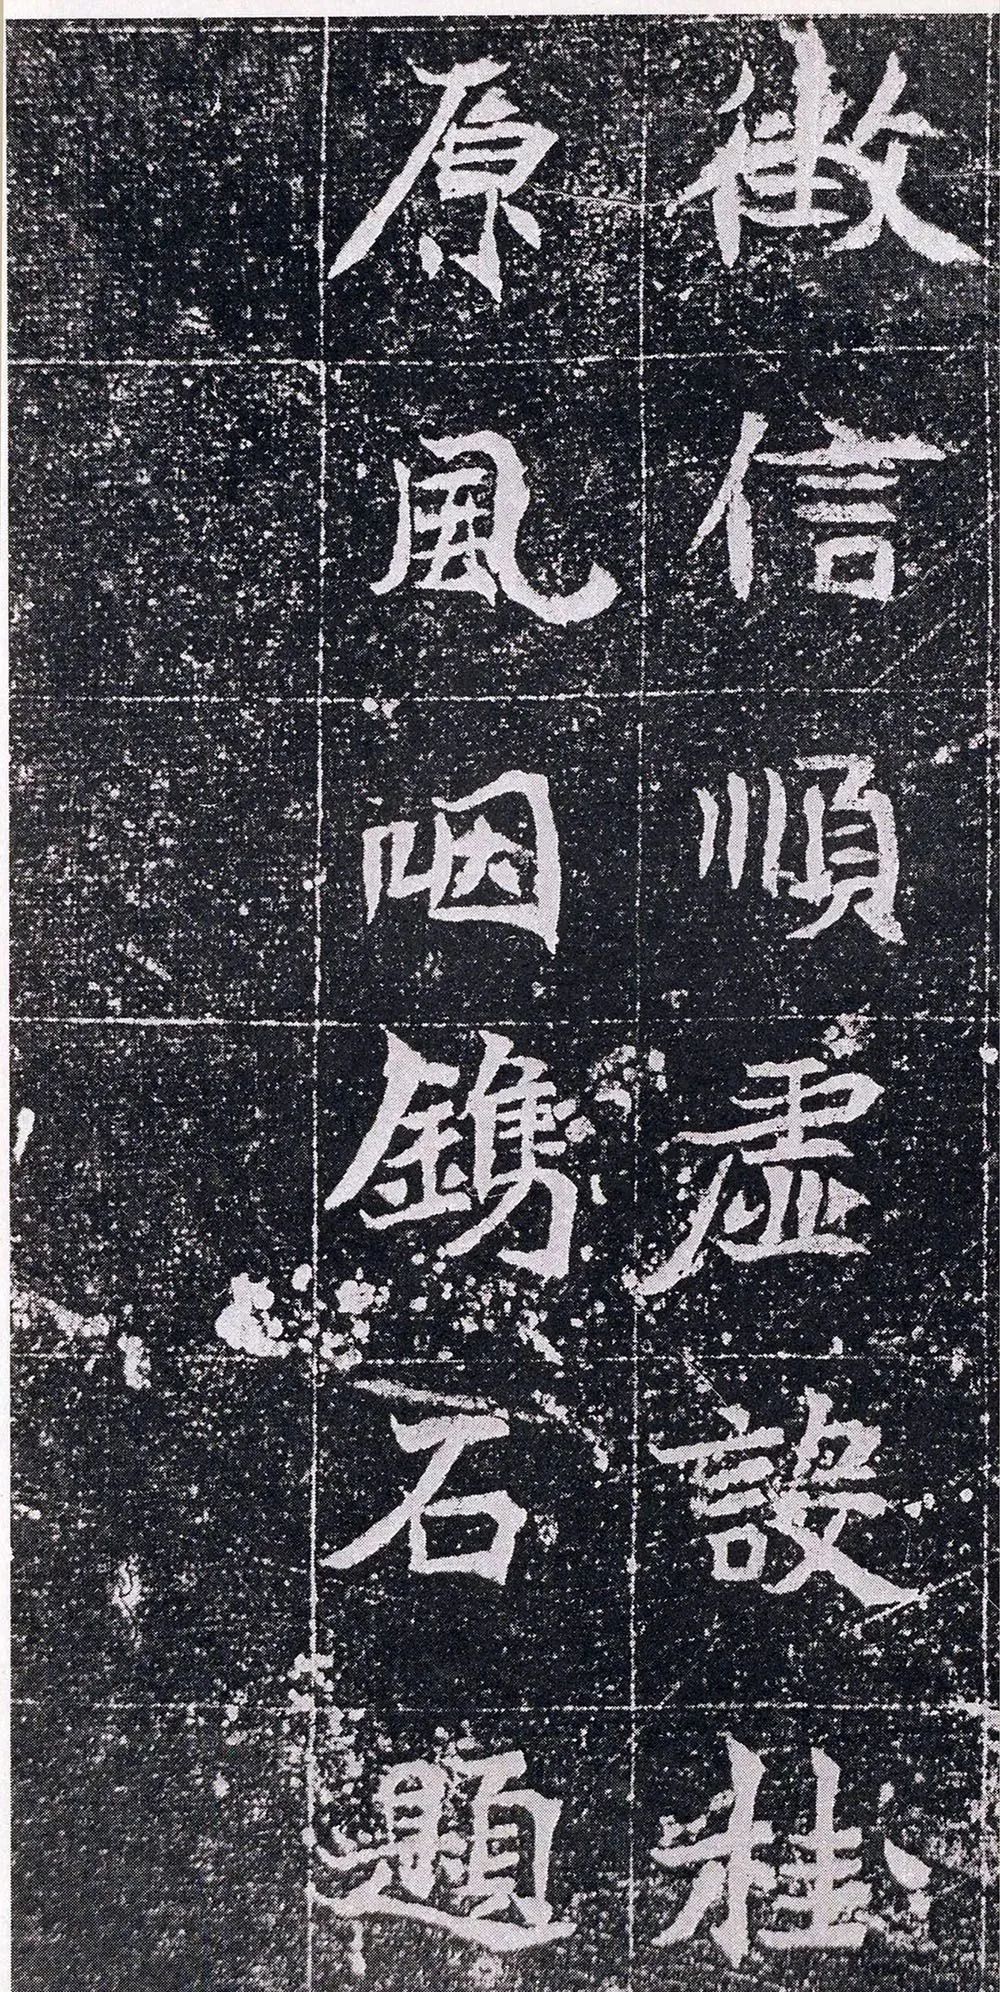 徵信順虛設桂
原風咽鎸石題